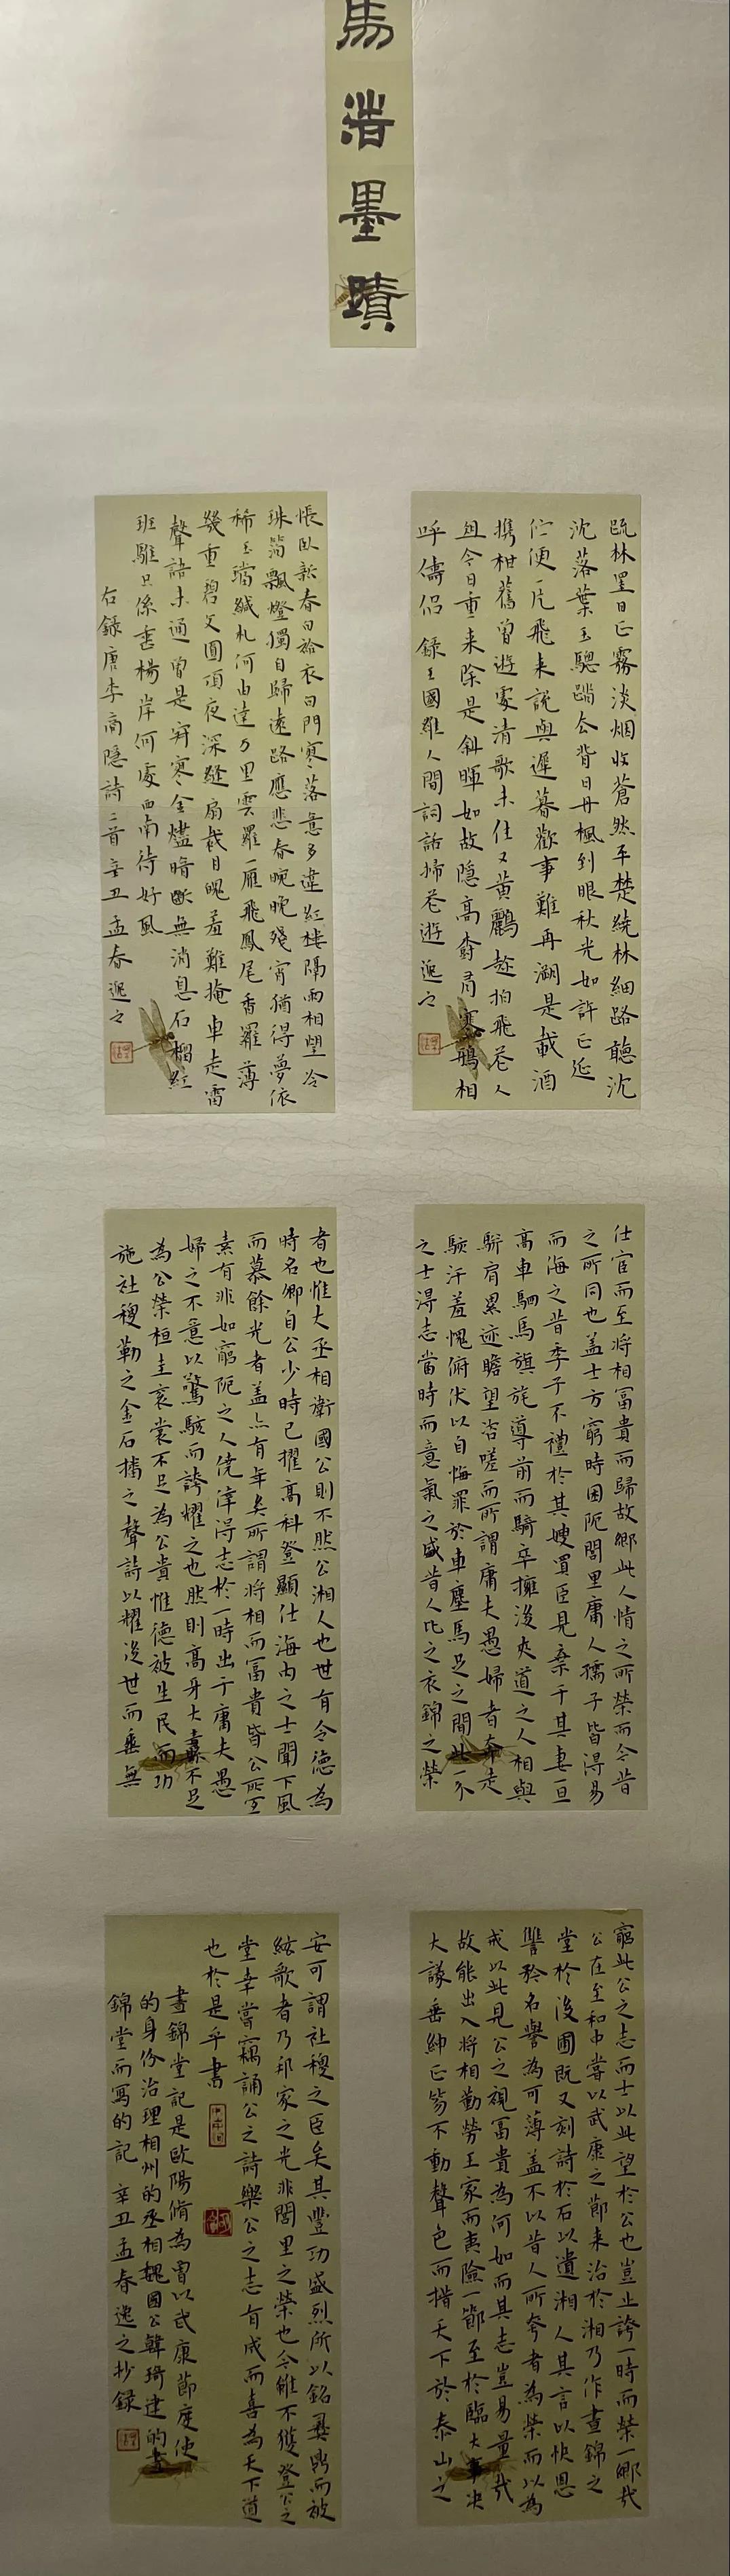 馬浩墨蹟
疏林罣日正霧淡烟收蒼然平楚繞林細路聽沈
沈落葉玉驄踏去背日丹楓到眼秋光如許正延
佇便一片飛来說與遲暮歡事難再溯是載酒
携柑舊曾遊處清歌未住又黄鸝趁拍飛花人
俎今日重来除是斜暉如故隐高齋有寒鴉相
呼儔侣 錄王國維人間詞話掃花遊 逸之
悵臥新春白袷衣白門寥落意多違紅樓隔雨相望冷
珠箔飄燈獨自歸遠路應悲春晼晚殘宵猶得夢依
稀玉璫緘札何由達万里雲羅一雁飛鳳尾香羅薄
幾重碧文圓頂夜深縫扇裁月魄羞難掩車走雷
聲語未通曾是寂寥金燼暗斷無消息石榴紅
班騅只係垂楊岸何處西南待好風
右錄唐李商隱詩二首辛丑孟春逸之
仕宦而至将相富貴而歸故鄉此人情之所榮而今昔
之所同也盖士方窮時困阨閭里庸人孺子皆得易
而海之昔季子不禮於其嫂買臣見棄于其妻一旦
高車駟馬旗旄導前而騎卒擁後夾道之人相與
駢肩累迹瞻望咨嗟而所謂庸夫愚婦者奔走
駭汗羞愧俯伏以自悔罪於車塵馬足之間此一介
之士得志當時而意氣之盛昔人比之衣錦之榮
者也惟大丞相衛國公則不然公湘人也世有令德為
時名卿自公少時已擢高科登顯仕海内之士聞下風
而慕餘光者盖亦有年矣所謂将相而富貴皆公所宜
素有非如窮阨之人僥倖得志於一時出于庸夫愚
婦之不意以驚駭而誇耀之也然則高牙大纛不足
為公榮桓圭衮裳不足為公貴惟德被生民而功
施社稷勒之金石播之聲詩以耀後世而垂無
窮此公之志而士以此望於公也豈止誇一時而榮一鄉哉
公在至和中嘗以武康之節来治於湘乃作晝錦之
堂於後圃既又刻詩於石以遺湘人其言以快恩
讐矜名譽為可薄盖不以昔人所夸者為榮而以為
戒以此見公之視富貴為何如而其志豈易量哉
故能出入将相勤勞王家而夷險一節至於臨大事决
大議垂紳正笏不動聲色而措天下於泰山之
安可謂社稷之臣矣其豐功盛烈所以銘彝鼎而被
絃歌者乃邦家之光非閭里之榮也今雖不獲登公之
堂幸嘗竊誦公之詩樂公之志有成而喜為天下道
也於是乎書
晝錦堂記是歐陽脩為曾以武康節度使
的身份治理相州的丞相魏國公韓琦建的晝
錦堂而寫的記 辛丑孟春逸之抄錄